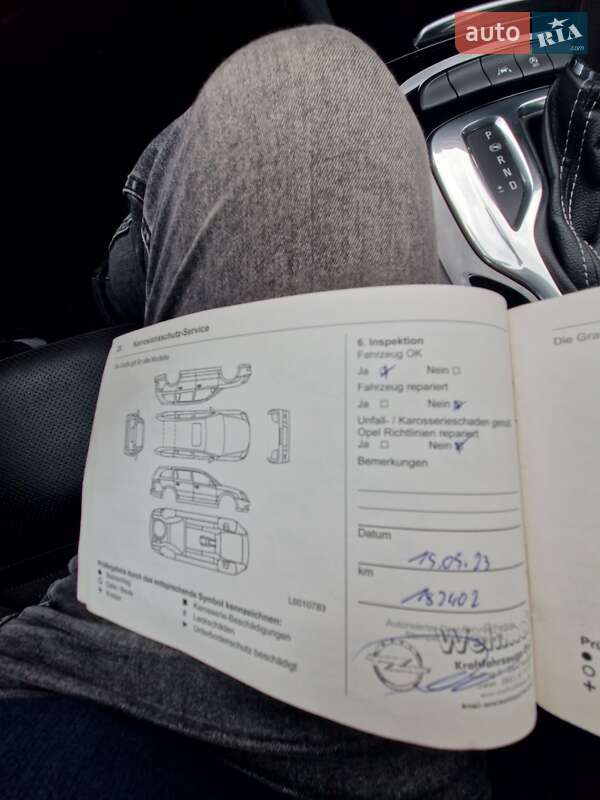 auto RIA.com
P
R
N
D
±
Korrosionsschutz-Service
6. Inspektion
Fahrzeug OK
Ja Nein
Fahrzeug repariert
Ja Nein
Unfall- / Karosserieschaden gemä
Opel Richtlinien repariert
Ja Nein
Bemerkungen
Datum
15.05.23
km
182402
Prüfergebnis durch das entsprechende Symbol kennzeichnen:
Steinschlag
Delle / Beule
Kratzer
Karosserie-Beschädigungen
Lackschäden
Unterbodenschutz beschädigt
L0010783
Kraftfahrzeuge
Die Gra
Prü